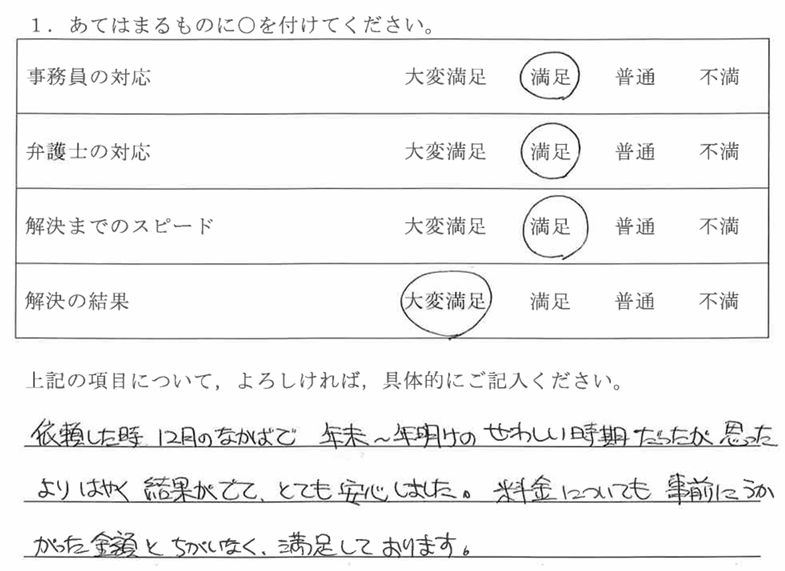 1．あてはまるものに○を付けてください。
事務員の対応 大変満足 満足 普通 不満
弁護士の対応 大変満足 満足 普通 不満
解決までのスピード 大変満足 満足 普通 不満
解決の結果 大変満足 満足 普通 不満
上記の項目について，よろしければ，具体的にご記入ください。
依頼した時 12月のなかばで 年末～年明けの せわしい時期だったが 思った
より はやく 結果がでて、とても 安心しました。 料金についても 事前にうか
がった 金額と ちがいなく、満足しております。